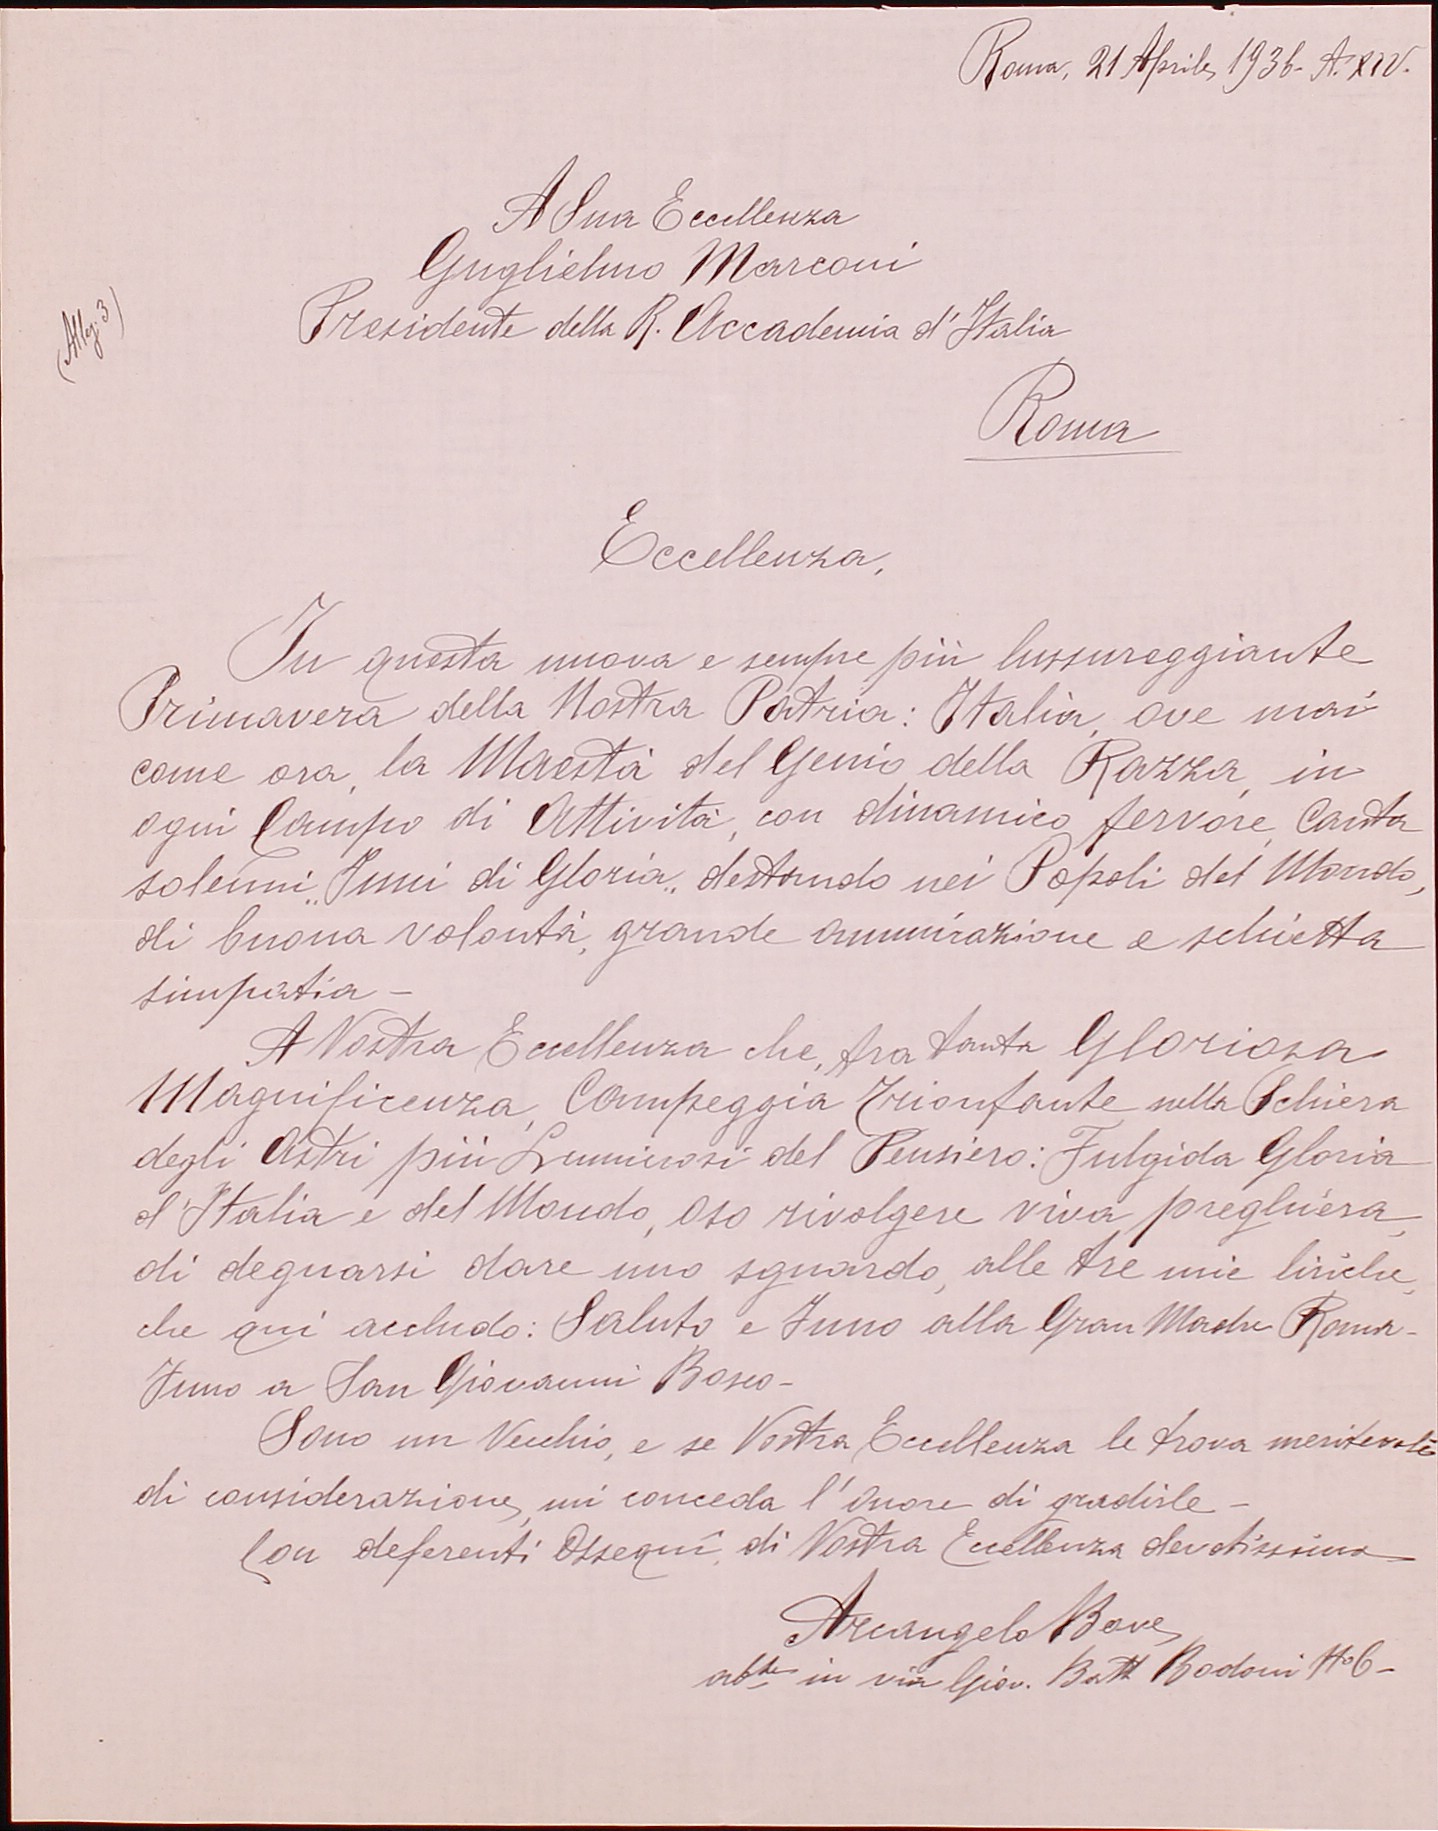 Roma, 21 Aprile 1936- A. XIV.
A Sua Eccellenza
Guglielmo Marconi
Presidente della R. Accademia d'Italia
(Alleg: 3)
Roma
Eccellenza,
In questa nuova e sempre più lussureggiante
Primavera della Nostra Patria: Italia, ove mai
come ora, la Maestà del Genio della Razza, in
ogni Campo di Attività, con dinamico fervore, Canta
solenni „Inni di Gloria„ destando nei Popoli del Mondo,
di buona volontà, grande ammirazione e schietta
simpatia -
A Vostra Eccellenza che, fra tanta Gloriosa
Magnificenza, Campeggia Trionfante nella Schiera
degli Astri più Luminosi del Pensiero: Fulgida Gloria
d'Italia e del Mondo, oso rivolgere viva preghiera,
di degnarsi dare uno sguardo, alle tre mie liriche,
che qui accludo: Saluto e Inno alla Gran Madre Roma-
Inno a San Giovanni Bosco-
Sono un Vecchio, e se Vostra Eccellenza le trova meritevoli
di considerazione, mi conceda l'onore di gradirle -
Con deferenti Ossequî, di Vostra Eccellenza devotissimo
Arcangelo Bove
abte in via Giov. Batt Bodoni No 6-